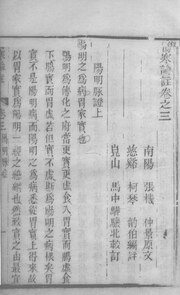 傷寒論註卷之三
南陽 張機 仲景原文
慈谿 柯琴 韻伯編註
崑山 馬中驊驤北較訂
陽明脈證上
陽明之爲病胃家實也
陽明爲傳化之府當更實更虛食入胃實而腸虛食
下腸實而胃虛若但實不虛斯爲陽明之病根矣胃
實不是陽明病而陽明之爲病悉從胃實上得來故
以胃家實爲陽明一經之總綱也然致實之由最宜